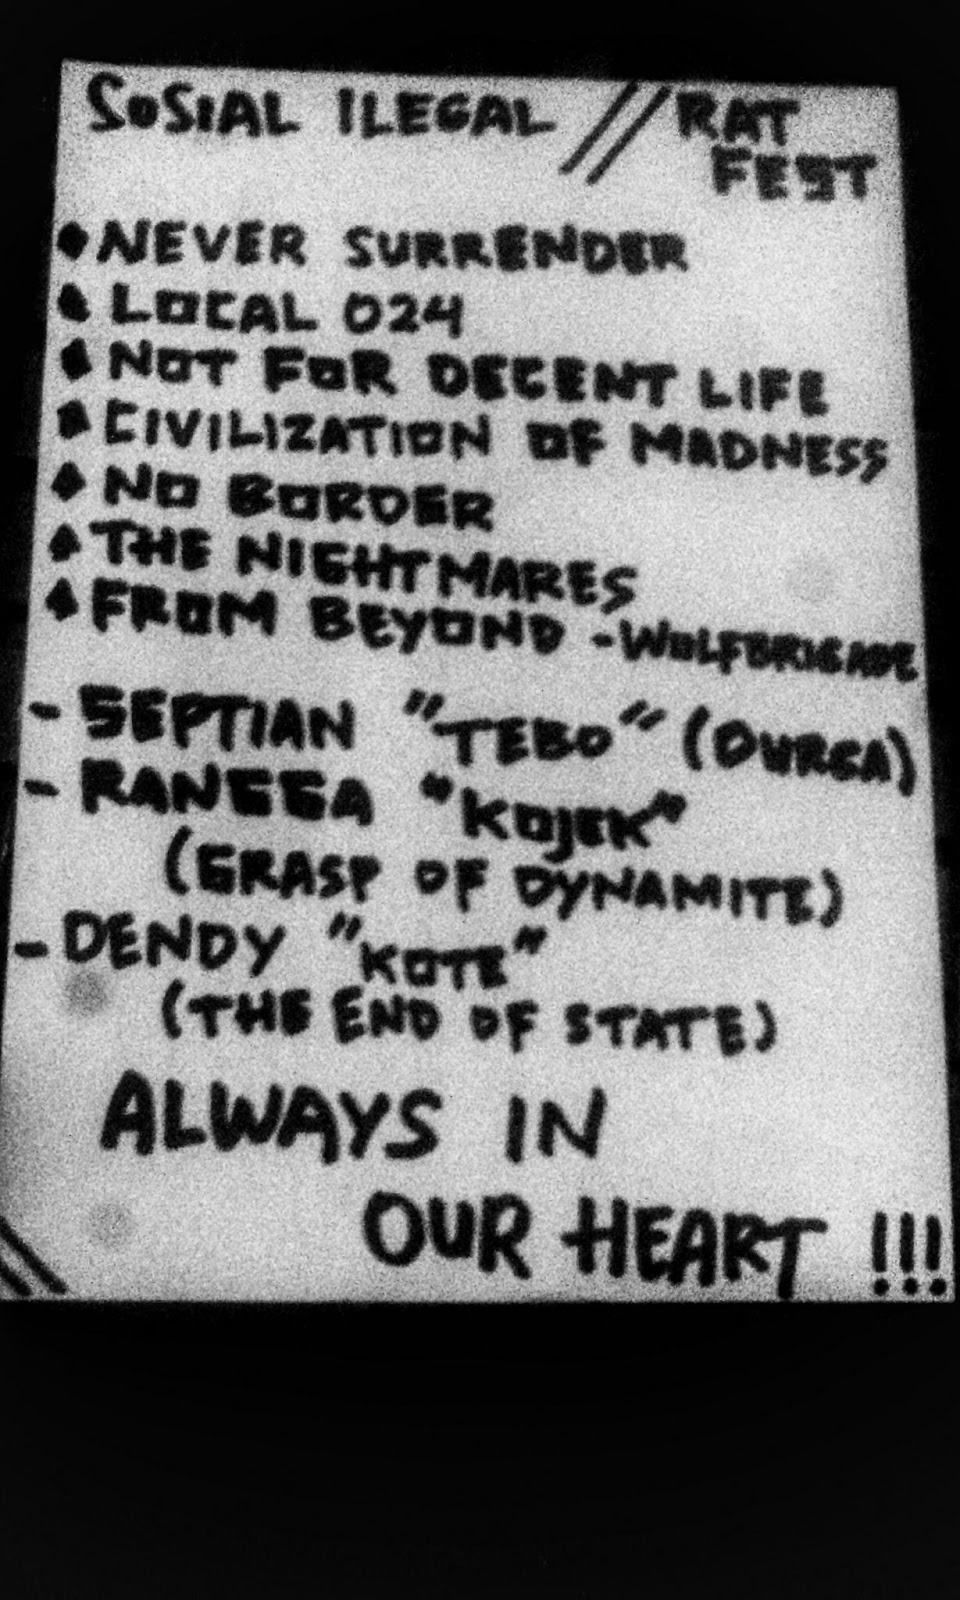 SOSIAL ILEGAL // RAT
FEST
NEVER SURRENDER
LOCAL 024
NOT FOR DECENT LIFE
CIVILIZATION OF MADNESS
NO BORDER
THE NIGHTMARES
FROM BEYOND - WOLFBRIGADE
- SEPTIAN "TEBO" (DURGA)
- RANGGA "KOJEK"
(GRASP OF DYNAMITE)
- DENDY "KOTE"
(THE END OF STATE)
ALWAYS IN
OUR HEART !!!